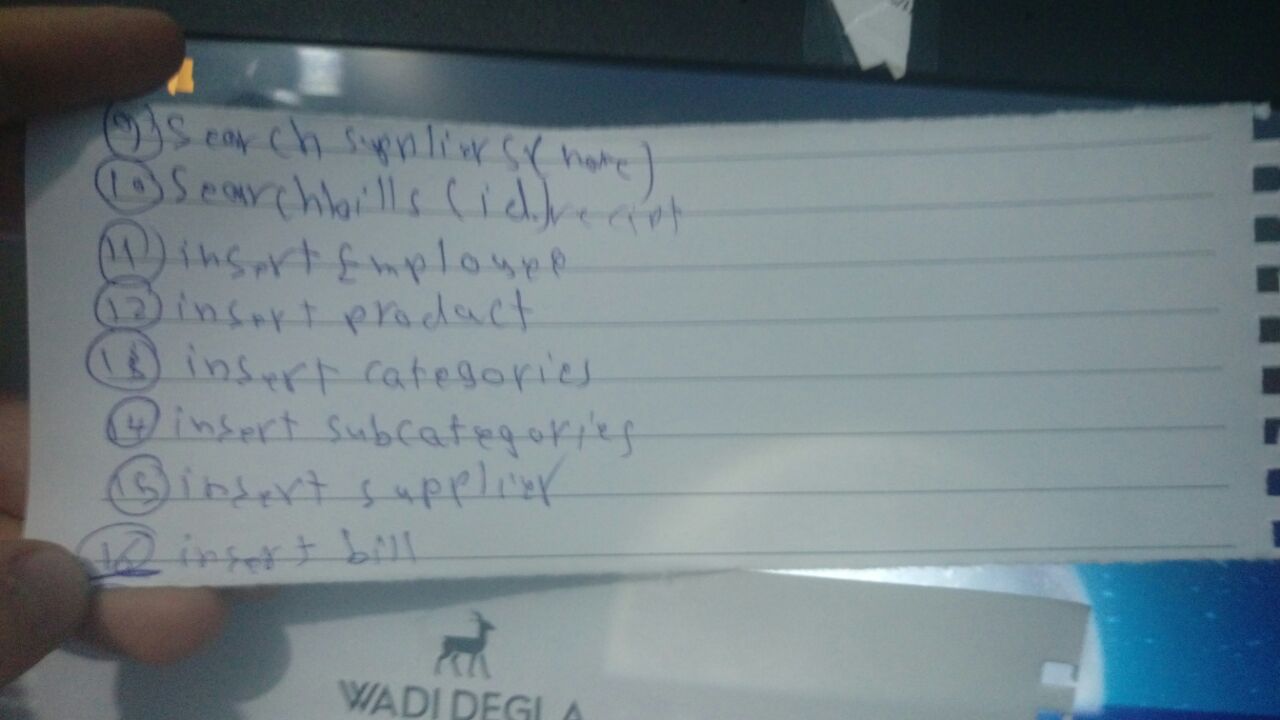 9) Search suppliers (name)
10) Search bills (id) recipt
11) insert Employee
12) insert product
13) insert categories
14 insert subcategories
15) insert supplier
16 insert bill
WADI DEGLA